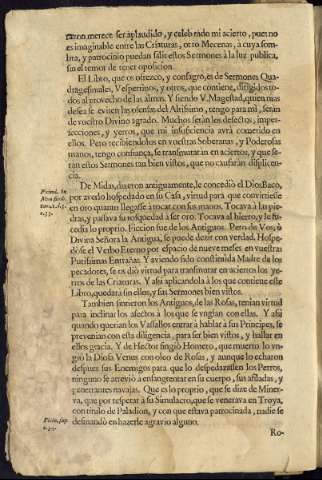 razon merece ser aplaudido, y celebrado mi acierto, pues no
es imaginable entre las Criaturas, otro Mecenas, à cuya som-
bra, y patrocinio puedan salir estos Sermones à la luz publica,
sin el temor de tener oposicion.
El Libro, que os ofrezco, y consagro, es de Sermones Qua-
dragesimales, Vespertinos, y otros, que contiene, dirigidos to-
dos al provecho de las almas. Y siendo V. Magestad, quien mas
desea se eviten las ofensas del Altissimo, tengo para mi, seràn
de vuestro Divino agrado. Muchos seràn los defectos, imper-
fecciones, y yerros, que mi insuficiencia avrà cometido en
ellos. Pero recibiendolos en vuestras Soberanas, y Poderosas
manos, tengo confiança, se transmutaràn en aciertos, y que se-
ràn estos Sermones tan bien vistos, que no causaràn displicen-
cia.
De Midas, dixeron antiguamente, le concediò el Dios Baco,
por averlo hospedado en su Casa, virtud para que convirtiesse
en oro quanto llegasse à tocar con sus manos. Tocava à las pie-
dras, y passava su tosquedad à ser oro. Tocava al hierro, y le su-
cedia lo proprio. Ficcion fue de los Antiguos. Pero de Vos, ò
Divina Señora la Antigua, se puede dezir con verdad. Hospe-
dòse el Verbo Eterno por espacio de nueve meses en vuestras
Purissimas Entrañas. Y aviendo sido constituida Madre de los
pecadores, se os diò virtud para transmutar en aciertos los ye-
rros de las Criaturas. Y assi aplicandola à los que contiene este
Libro, quedaràn sin ellos, y sus Sermones bien vistos.
Tambien sintieron los Antiguos, de las Rosas, tenian virtud
para inclinar los afectos à los que se vngian con ellas. Y assi
quando querian los Vassallos entrar à hablar à sus Principes, se
prevenian con esta diligencia, para ser bien vistos, y hallar en
ellos gracia. Y de Hector fingiò Homero, que muerto lo vn-
giò la Diosa Venus con oleo de Rosas, y aunque lo echaron
despues sus Enemigos para que lo despedazassen los Perros,
ninguno se atreviò à ensangrentar en su cuerpo, sus afiladas, y
penetrantes navajas. Que es lo proprio, que se dize de Miner-
va, que por respetar à su Simulacro, que se venerava en Troya,
con titulo de Paladion, y con que estava patrocinada, nadie se
desmandò en hazerle agravio alguno.
Ro-